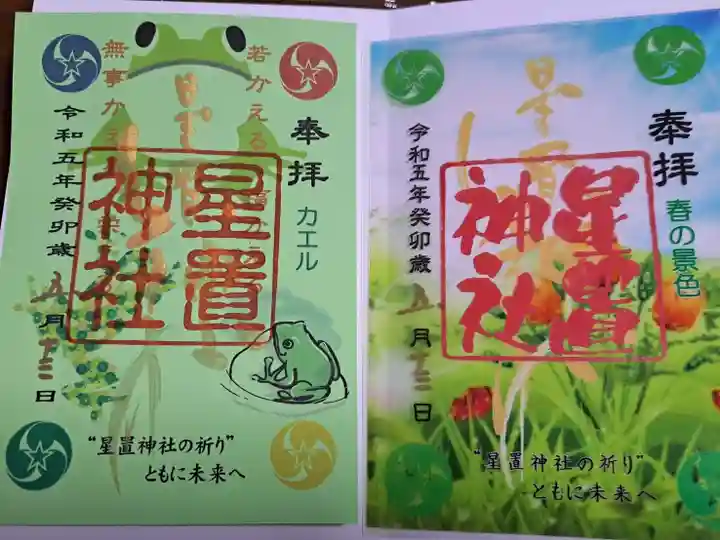 奉拝
カエル
若かえる
星置
神社
無事かえ
令和五年癸卯歳
五月十三日
“星置神社の祈り”
ともに未来へ
奉拝
春の景色
星置
星置
神社
令和五年癸卯歳
五月十三日
“星置神社の祈り”
ともに未来へ